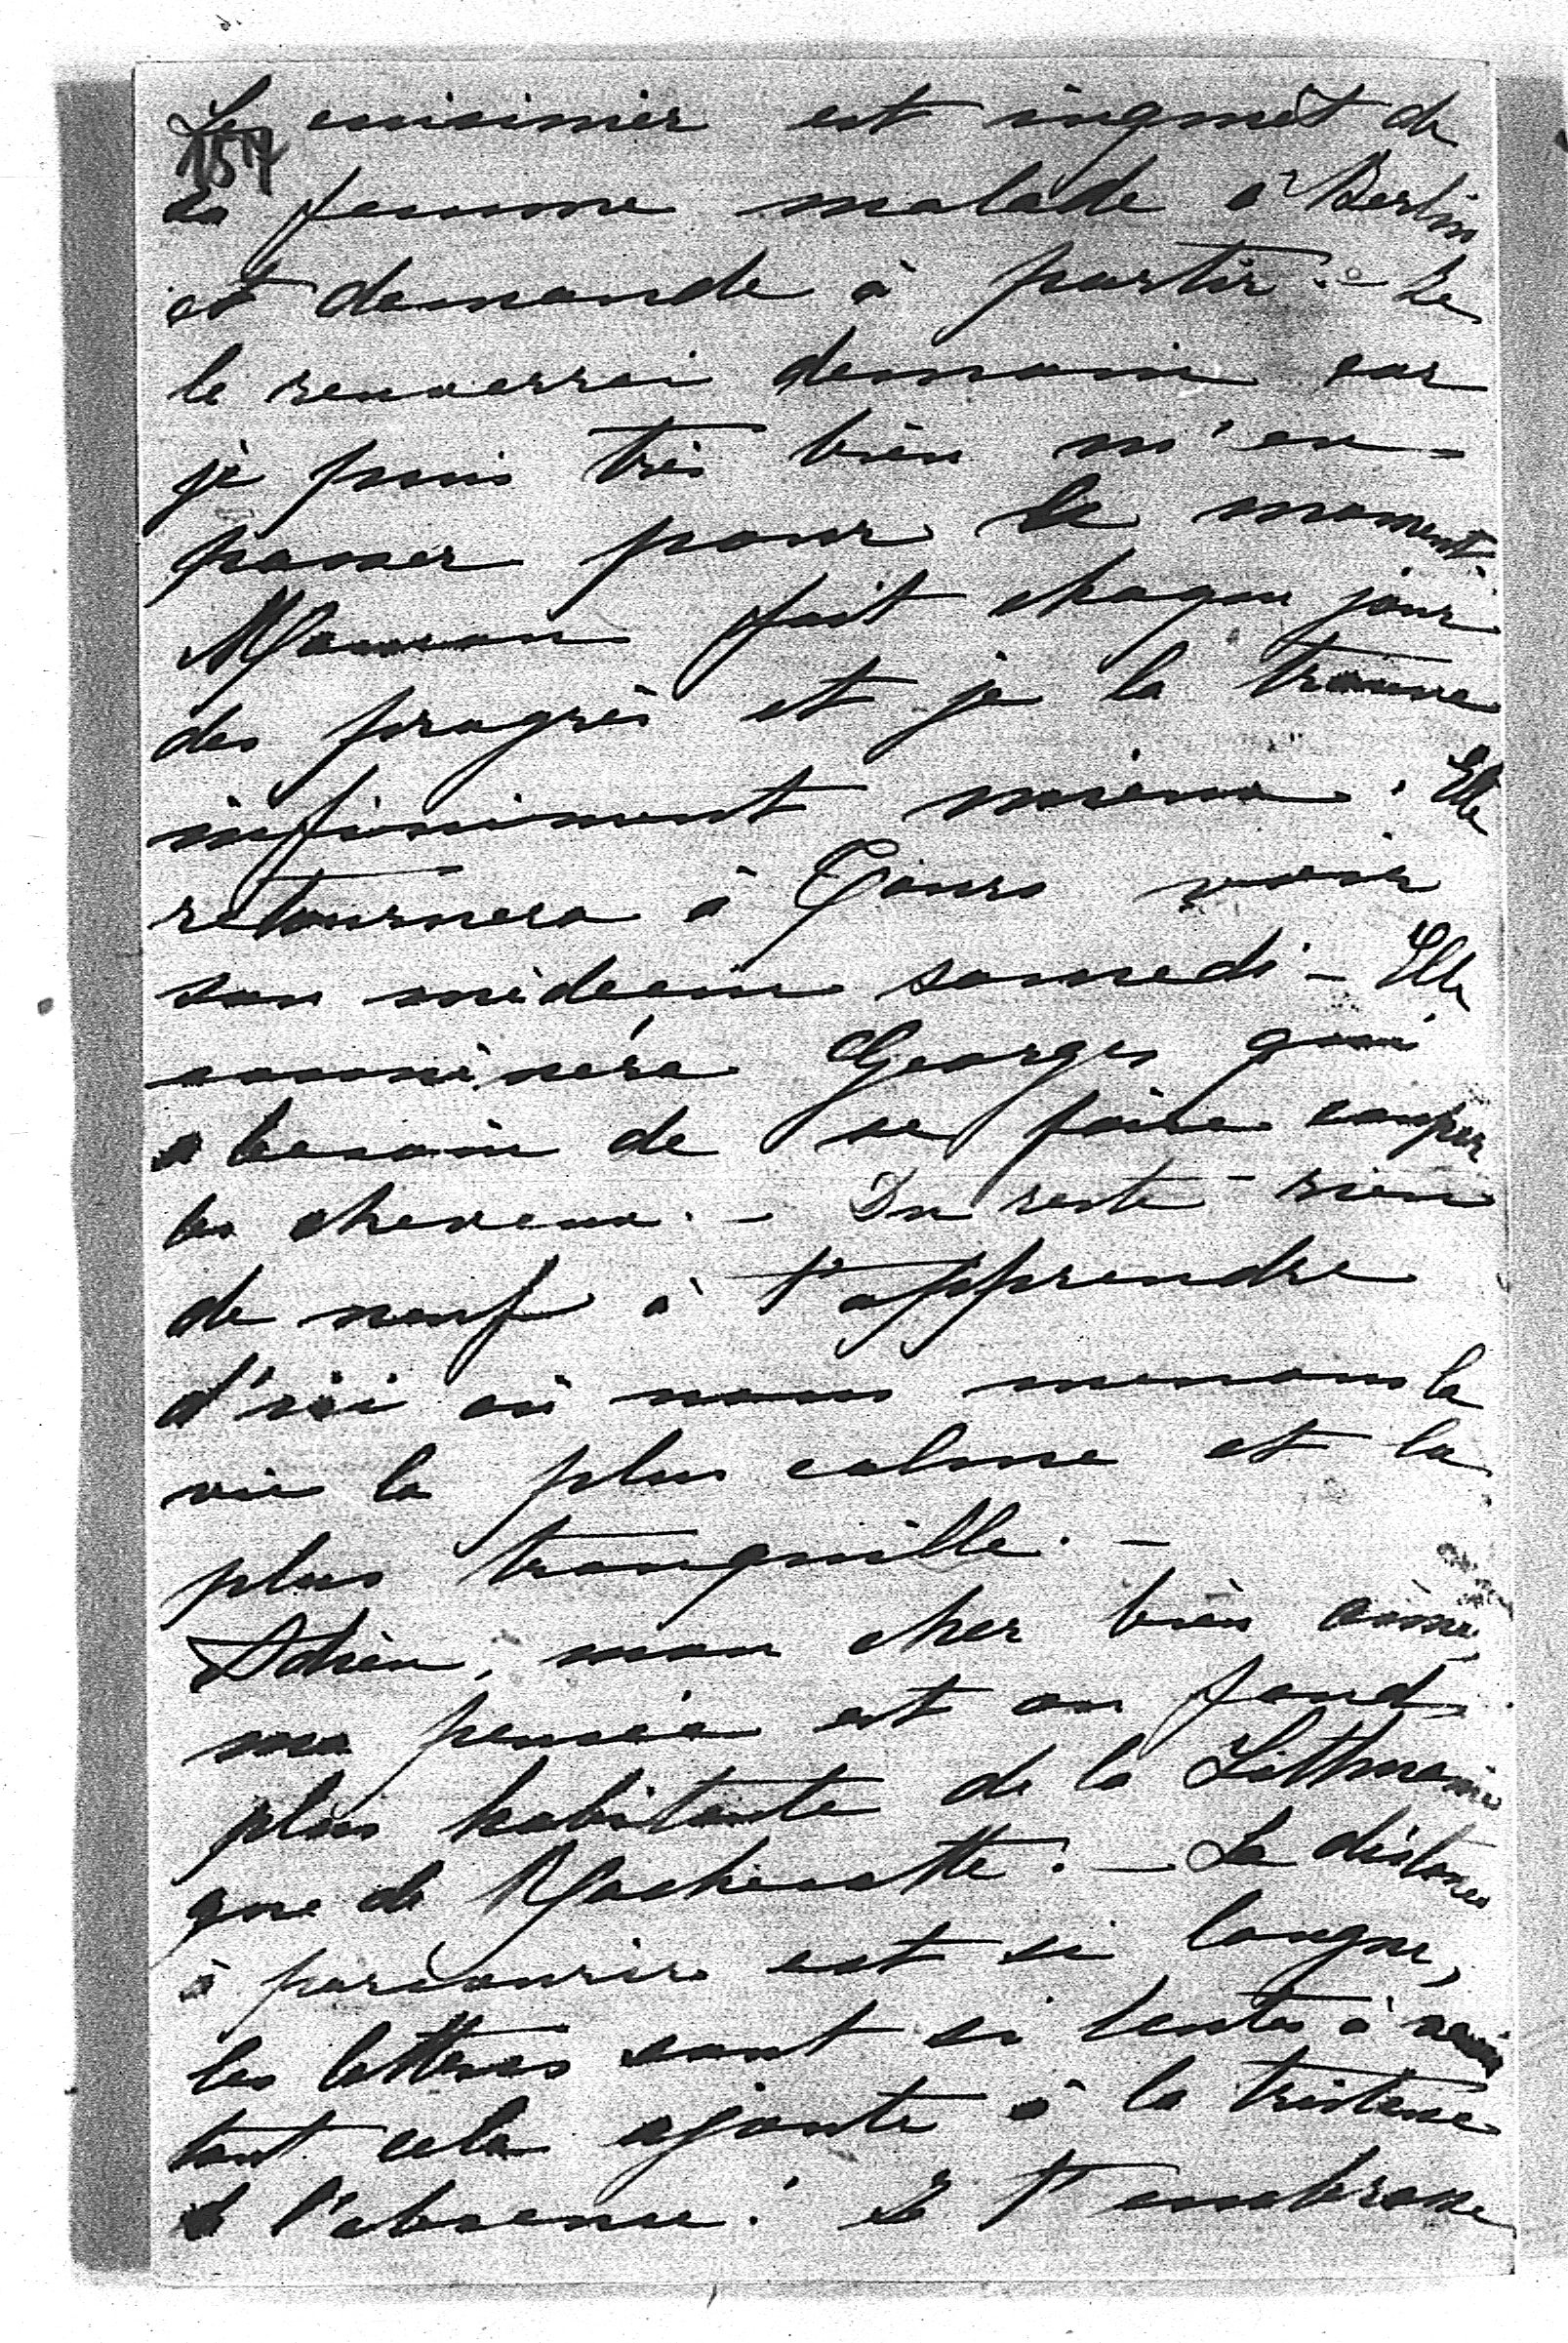 Le cuisinier est inquiet de
157
sa femme malade à Berlin
et demande à partir. - Je
le renverrai demain car
je puis très bien m'en
passer pour le moment.
Maman fait chaque jour
des progrès et je la trouve
infiniment mieux. Elle
retournera à Tours voir
son médecin samedi - Elle
emmènera Georges qui
a besoin de se faire couper
les cheveux. - Du reste rien
de neuf à t'apprendre
d'ici où nous menons la
vie la plus calme et la
plus tranquille. -
Adieu, mon cher bien aimé,
ma pensée est au fond
plus habitante de la Lithuanie
que de . - La distance
à parcourir est si longue,
les lettres sont si lentes à venir
tout cela ajoute à la tristesse
de l'absence. Je t'embrasse